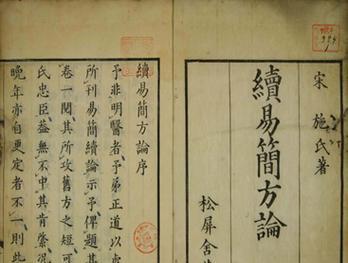 宋 施氏著
續易簡方論
松屏舍
續易簡方論序
予非明醫者予弟正道以
所刊易簡續論示予俾題其
卷一閱其所攻舊方之短可
氏忠臣益無不中其肯綮
晚年亦自更定者不一則此